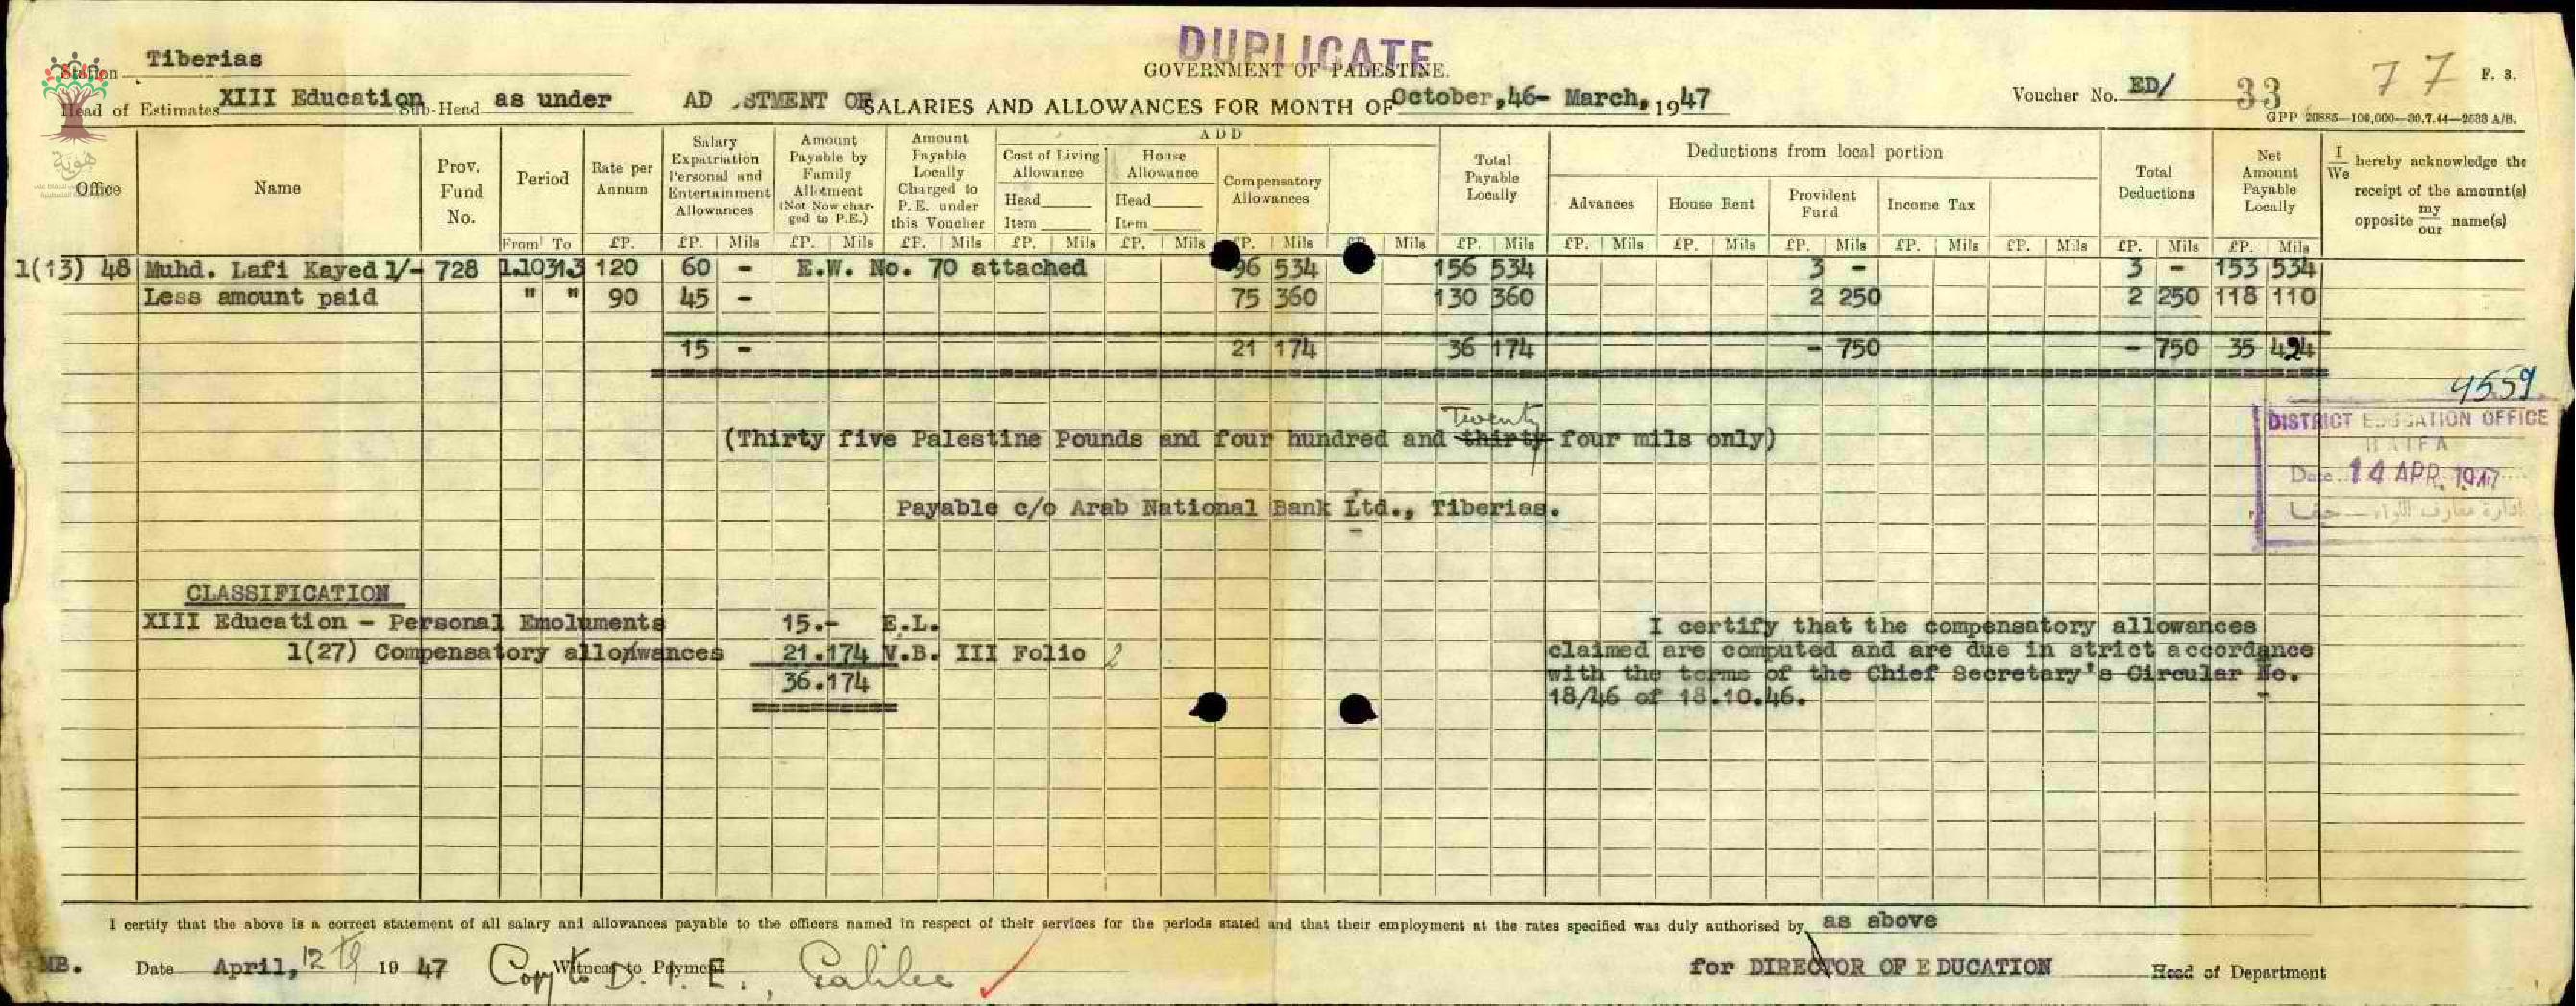 DUPLICATE
GOVERNMENT OF PALESTINE.
Station Tiberias
Head of Estimates XIII Education Sub-Head as under
AD STMENT OF SALARIES AND ALLOWANCES FOR MONTH OF October,46- March, 1947
Voucher No. ED/ 33
77
F. 3.
GPP 20885—100,000—30.7.44—2633 A/B.
Office
Name
Prov. Fund No.
Period
From To
Rate per Annum
£P.
Salary Expatriation Personal and Entertainment Allowances
£P. Mils
Amount Payable by Family Allotment (Not Now charged to P.E.)
£P. Mils
Amount Payable Locally Charged to P.E. under this Voucher
£P. Mils
ADD
Cost of Living Allowance
Head
Item
£P. Mils
House Allowance
Head
Item
£P. Mils
Compensatory Allowances
£P. Mils
Mils
Total Payable Locally
£P. Mils
Deductions from local portion
Advances
£P. Mils
House Rent
£P. Mils
Provident Fund
£P. Mils
Income Tax
£P. Mils
£P. Mils
Total Deductions
£P. Mils
Net Amount Payable Locally
£P. Mils
I We hereby acknowledge the receipt of the amount(s) opposite my our name(s)
1(13) 48 Muhd. Lafi Kayed 1/- 728 1.10 31.3 120 60 - E.W. No. 70 attached 96 534 156 534 3 - 3 - 153 534
Less amount paid " " 90 45 - 75 360 130 360 2 250 2 250 118 110
15 - 21 174 36 174 - 750 - 750 35 424
4559
(Thirty five Palestine Pounds and four hundred and thirty Twenty four mils only)
DISTRICT EDUCATION OFFICE
HAIFA
Date 14 APR. 1947
إدارة معارف اللواء — حيفا
Payable c/o Arab National Bank Ltd., Tiberias.
CLASSIFICATION
XIII Education - Personal Emoluments 15.- E.L.
1(27) Compensatory allowances 21.174 V.B. III Folio 2
36.174
I certify that the compensatory allowances
claimed are computed and are due in strict accordance
with the terms of the Chief Secretary's Circular No.
18/46 of 18.10.46.
I certify that the above is a correct statement of all salary and allowances payable to the officers named in respect of their services for the periods stated and that their employment at the rates specified was duly authorised by as above
MB. Date April, 12th 1947 Witness to Payment
Copy to D.I.E., Galilee
for DIRECTOR OF EDUCATION Head of Department
هوية